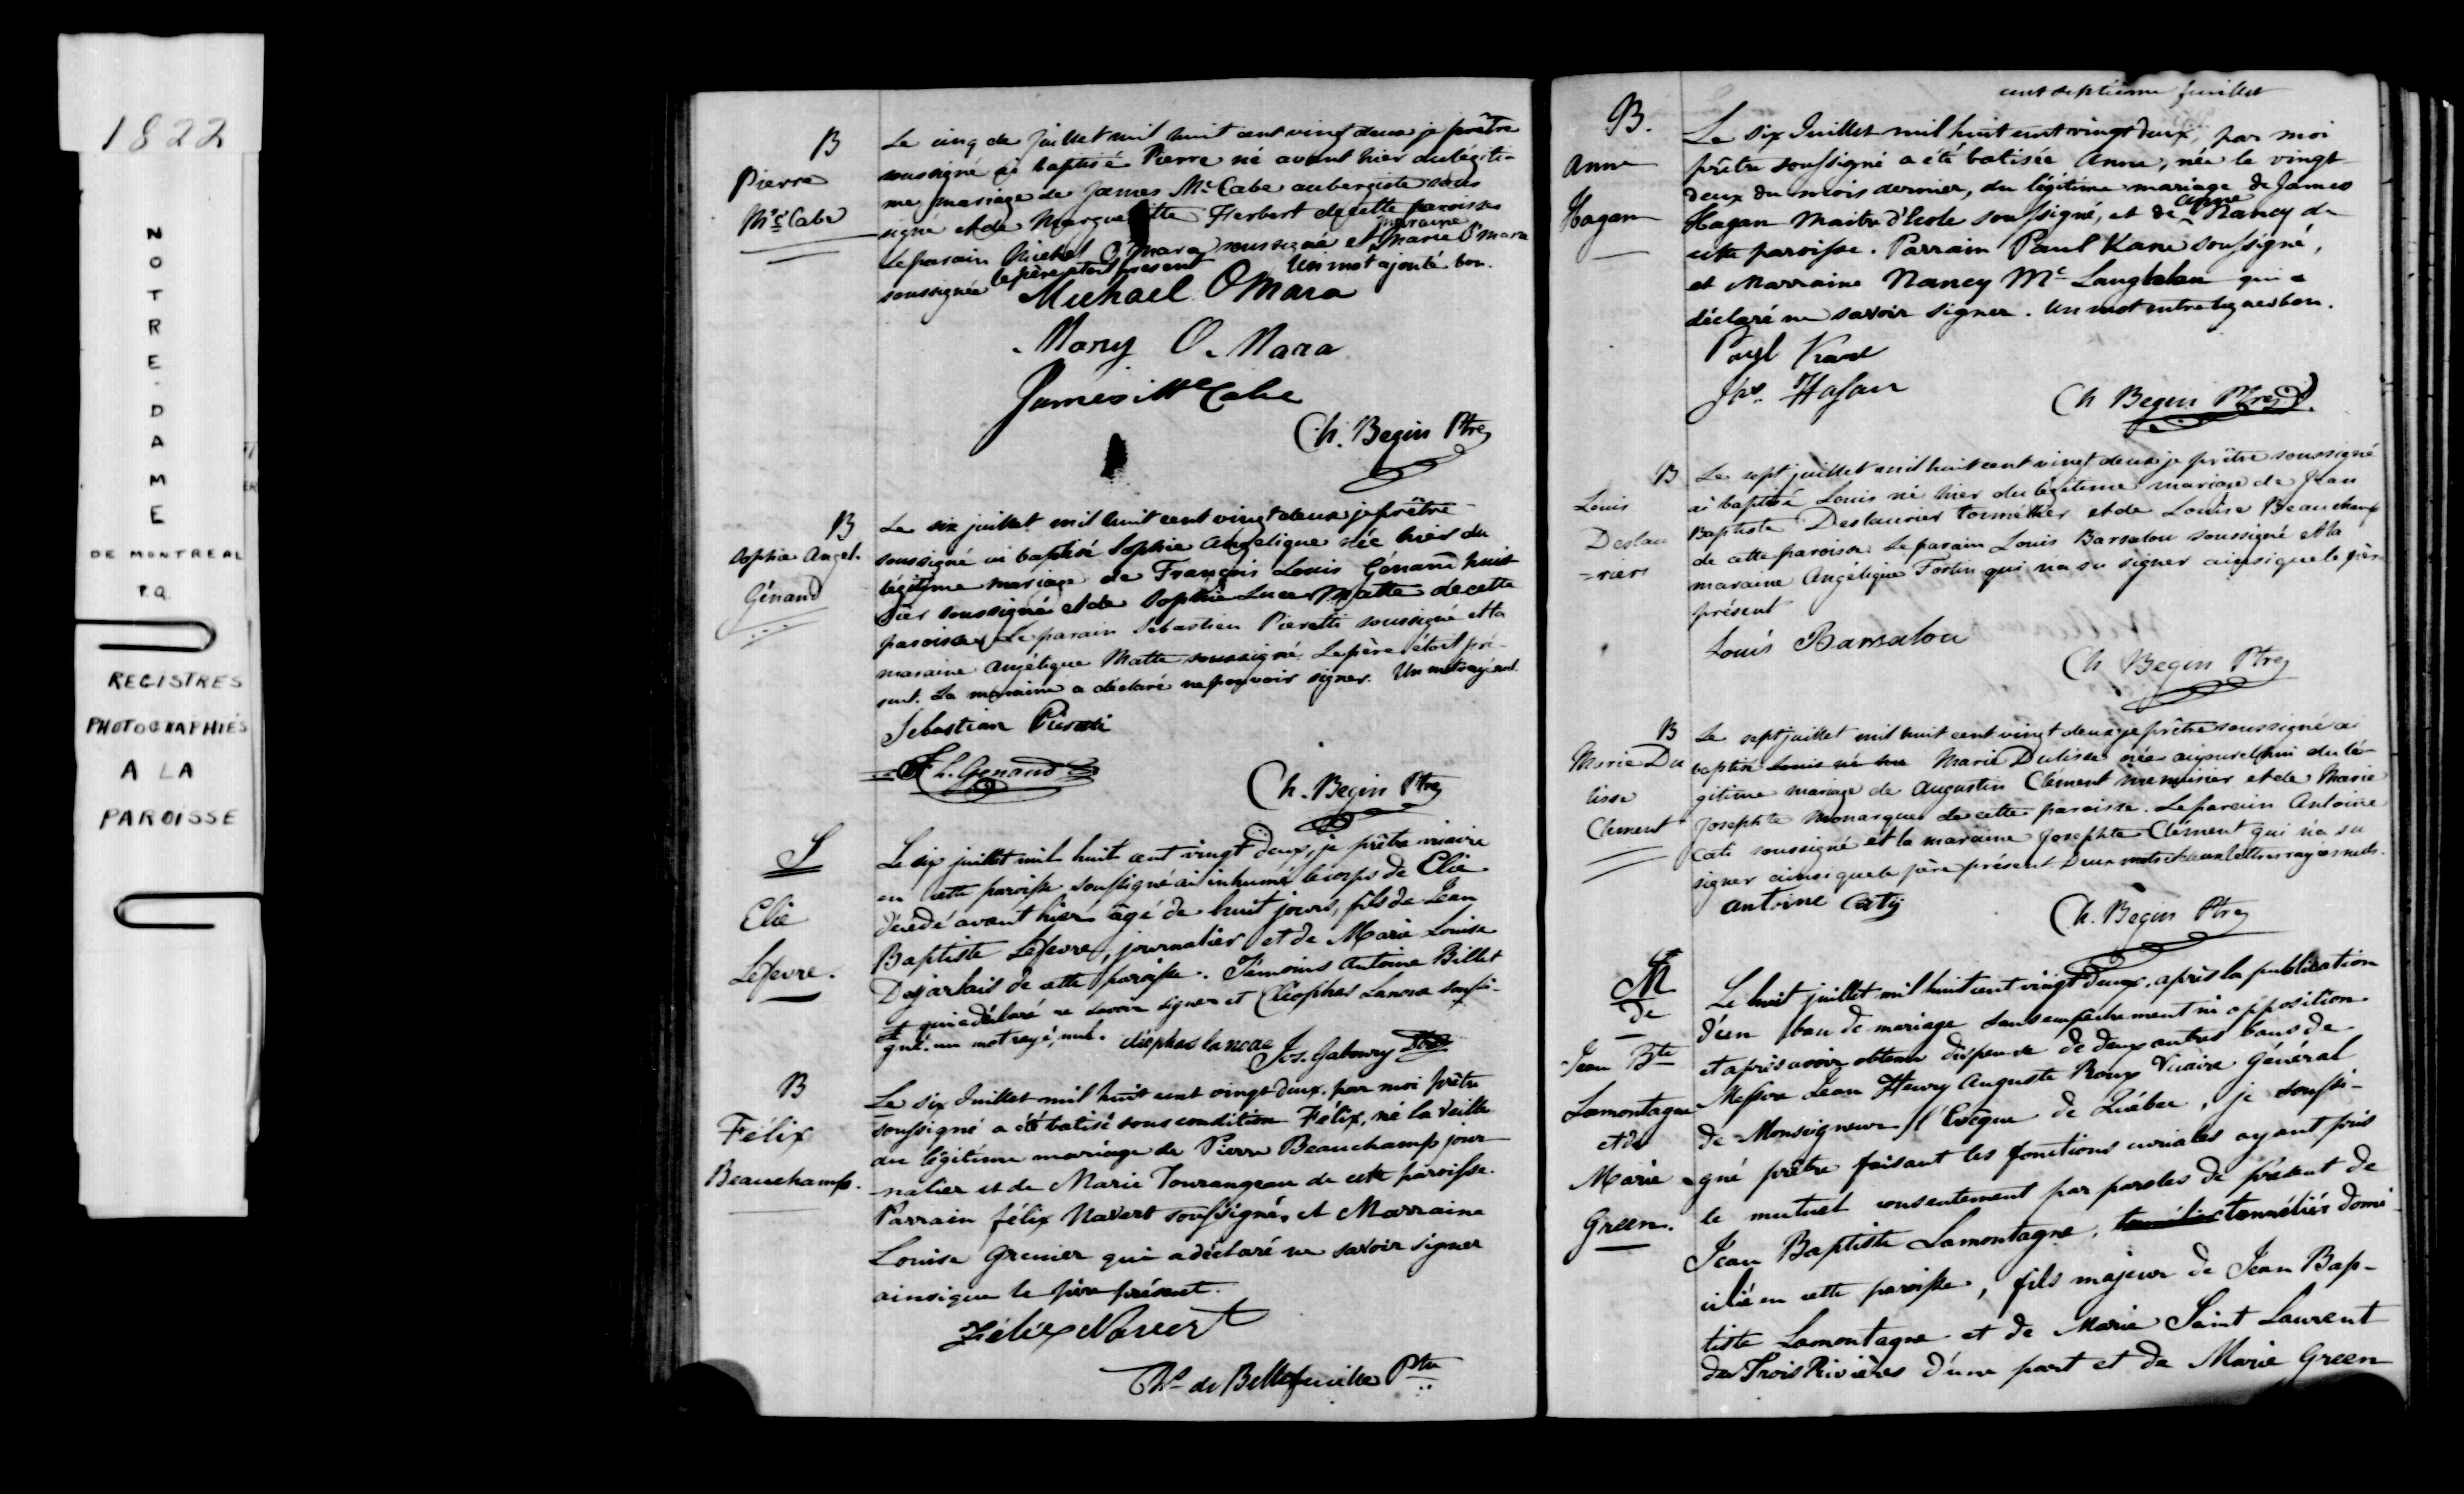 1822
NOTRE-DAME
DE MONTREAL
P.Q.
REGISTRES
PHOTOGRAPHIÉS
A LA
PAROISSE
B
Pierre
Mc Cabe
Le cinq de juillet mil huit cent vingt deux je prêtre
soussigné ai baptisé Pierre né avant hier du légiti-
me mariage de James Mc Cabe aubergiste sous
signé et de Margueritte Herbert de cette paroisse
maraine
Le parain Michel O mara soussigné et Marie O'mara
soussignée le père étoit présent Un mot ajouté bon.
Michael OMara
Mary O. Mara
James McCabe
Ch. Begin Ptre
B
Sophie Angel.
Génand
Le six juillet mil huit cent vingt deux je prêtre
soussigné ai baptisé Sophie Angelique née hier du
légitime mariage de François Louis Génand huis-
sier soussigné et de Sophie Luce Matte de cette
paroisse. Le parain Sebastien Pieretti soussigné et la
maraine Angélique Matte soussigné. Le père étoit pré-
sent. La maraine a déclaré ne pouvoir signer. Un mot rayé nul.
Sebastian
F. L. Genand
Ch. Begin Ptre
S
Elie
Lefevre.
Le six juillet mil huit cent vingt deux, je prêtre vicaire
en cette paroisse soussigné ai inhumé le corps de Elie
décédé avant hier âgé de huit jours, fils de Jean
Baptiste Lefevre, journalier et de Marie Louise
Desjarlais de cette paroisse. Témoins Antoine Billet
et qui a déclaré ne savoir signer et Cléophas Lanoue soussi-
gné. un mot rayé, nul. cléophas lanoue Jos. Gaboury Ptre
B
Félix
Beauchamp.
Le six Juillet mil huit cent vingt deux, par moi prêtre
soussigné a été batisé sous condition Félix, né la veille
du légitime mariage de Pierre Beauchamp jour-
nalier et de Marie Tourangeau de cette paroisse.
Parrain félix Navert soussigné, et Marraine
Louise Grenier qui a déclaré ne savoir signer
ainsi que le père présent.
Félix Navert
de Bellefeuille Ptre
cent septième feuillet
B.
Anne
Hagan
Le six Juillet mil huit cent vingt deux, par moi
prêtre soussigné a été batisée Anne, née le vingt
deux du mois dernier, du légitime mariage de James
Hagan Maitre d'école soussigné, et de Anne Nancy de
cette paroisse. Parrain Paul Kane soussigné,
et Marraine Nancy Mc Laughlen qui a
déclaré ne savoir signer. Un mot entreligne bon.
Paul Kane
Jas. Hagan
Ch Begin Ptre
B
Louis
Deslau
=rier
Le sept juillet mil huit cent vingt deux je prêtre soussigné
ai baptisé Louis né hier du légitime mariage de Jean
Baptiste Deslaurier tonnellier et de Louise Beauchamp
de cette paroisse. Le parain Louis Barsalou soussigné et la
maraine Angélique Fortin qui n'a su signer ainsi que le père
présent
Louis Barsalou
Ch Begin Ptre
B
Marie Du
lisse
Clement
Le sept juillet mil huit cent vingt deux je prêtre soussigné ai
baptisé Louis né hier Marie Dulisse née aujourd'hui du lé-
gitime mariage de Augustin Clément menuisier et de Marie
Josephte Monarque de cette paroisse. Le parain Antoine
Cati soussigné et la maraine Josephte Clément qui n'a su
signer ainsi que le père présent. Deux mots et deux lettres rayés nuls.
antoine Caty
Ch. Begin Ptre
M
De
Jean Bte
Lamontagne
et de
Marie
Green.
Le huit juillet mil huit cent vingt deux, après la publication
d'un ban de mariage sans empêchement ni opposition
et après avoir obtenu dispense de deux autres bans de
Messire Jean Henry Auguste Roux Vicaire Général
de Monseigneur l'Evêque de Québec, je soussi-
gné prêtre faisant les fonctions curiales ayant pris
le mutuel consentement par paroles de présent de
Jean Baptiste Lamontagne, tonnélier domi-
cilié en cette paroisse, fils majeur de Jean Bap-
tiste Lamontagne et de Marie Saint Laurent
des Trois Rivières d'une part et de Marie Green